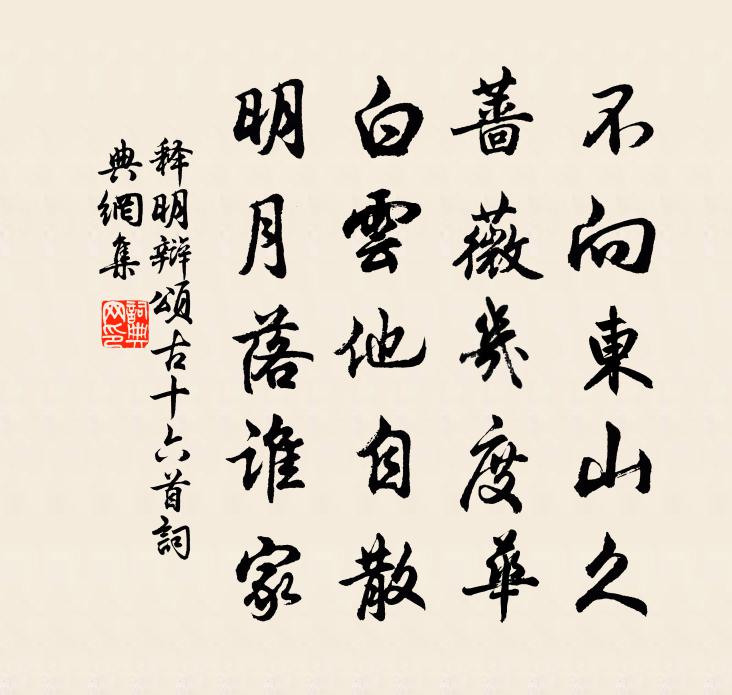 不向東山久
薔薇幾度華
白雲他自散
明月落誰家
释明辯頌古十六首詞
典網集
詞典网印